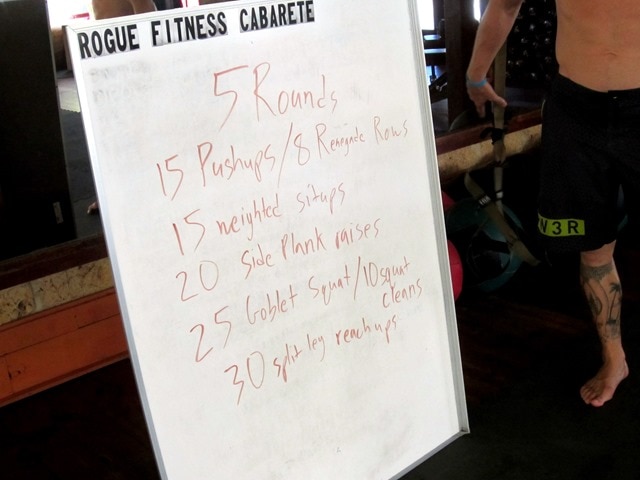 ROGUE FITNESS CABARETE
5 Rounds
15 Pushups/8 Renegade Rows
15 weighted situps
20 Side Plank raises
25 Goblet Squat/10 squat
cleans
30 split leg reach ups
W3R